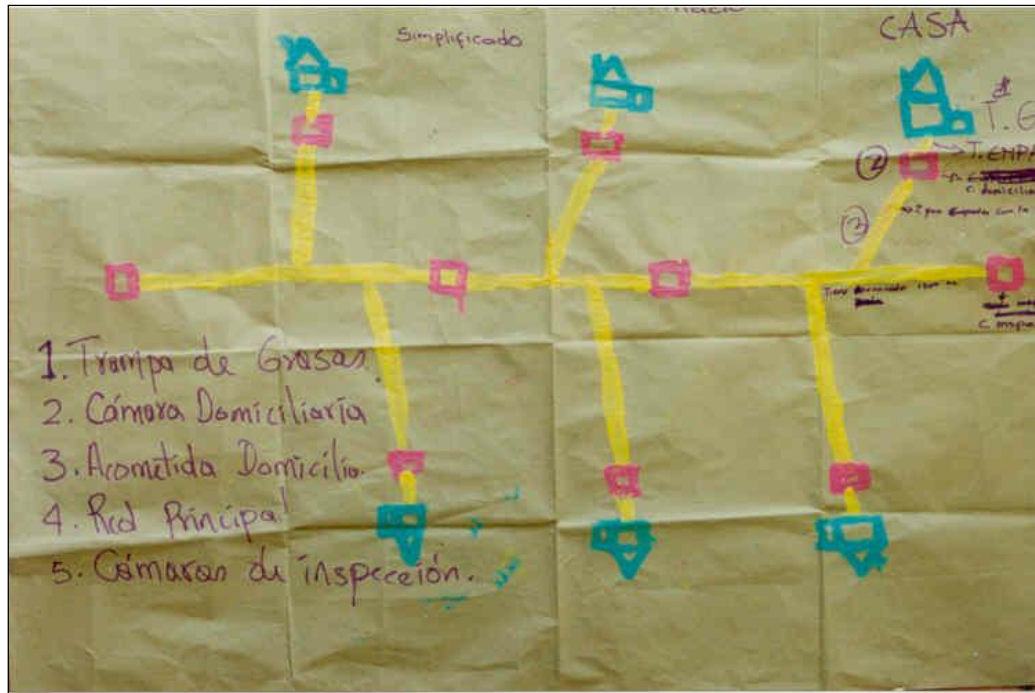 Simplificado
CASA
T.G
2
T. EMPA
c. domicilia
3
1. Trampa de Grasas.
2. Cámara Domiciliaria
3. Acometida Domicilio.
4. Red Principal
5. Cámaras de inspección.